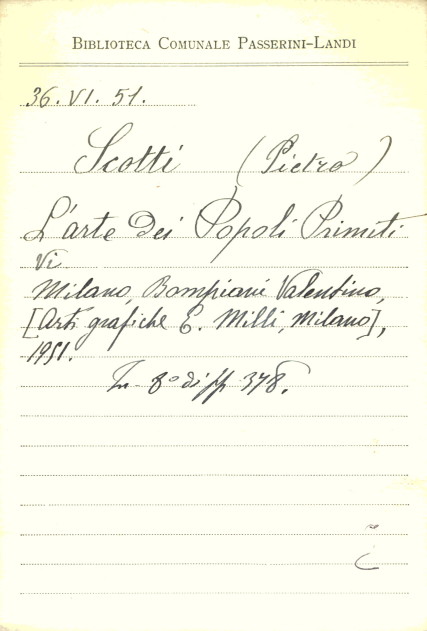 BIBLIOTECA COMUNALE PASSERINI-LANDI
36. VI. 51.
Scotti (Pietro)
L'arte Dei Popoli Primiti
vi
Milano, Bompiani Valentino,
[Arti grafiche E. Milli, Milano],
1951.
In 8° di pp 378.